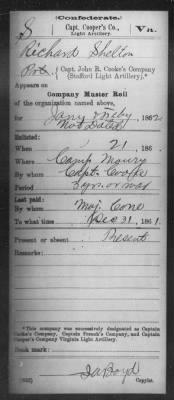 (Confederate.)
S Capt. Cooper's Co., Vn.
Light Artillery.
Richard Shelton
Pvt., Capt. John R. Cooke's Company
(Stafford Light Artillery).*
Appears on
Company Muster Roll
of the organization named above,
for Jany & Feby, 1862
Not Dated
Enlisted:
When 21, 186
Where Camp Maury
By whom Capt. Cooke
Period 2 yrs or war
Last paid:
By whom Maj. Cone
To what time Dec 31, 1861.
Present or absent Present
Remarks:
*This company was successively designated as Captain
Cooke's Company, Captain French's Company, and Captain
Cooper's Company Virginia Light Artillery.
Book mark:
Boyd
Copyist.